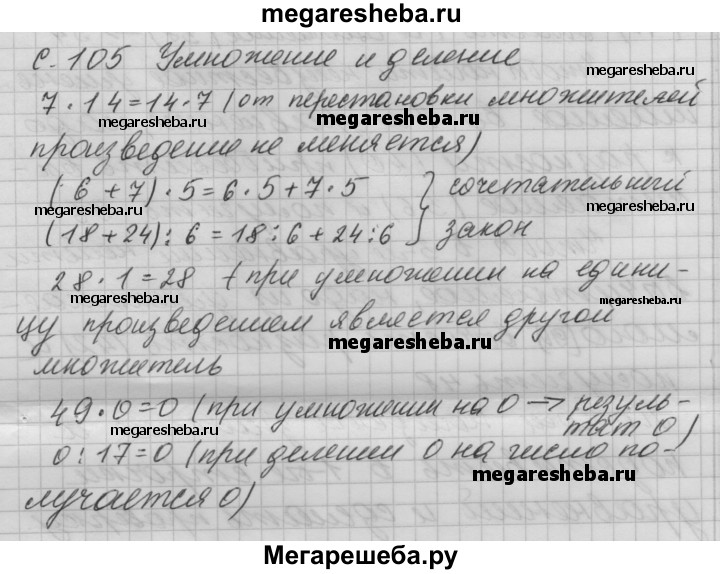 megaresheba.ru
с. 105 Умножение и деление
megaresheba.ru
7 · 14 = 14 · 7 (от перестановки множителей
megaresheba.ru megaresheba.ru
произведение не меняется)
(6 + 7) · 5 = 6 · 5 + 7 · 5 } сочетательный
megaresheba.ru megaresheba.ru
(18 + 24) : 6 = 18 : 6 + 24 : 6 закон
28 · 1 = 28 (при умножении на едини-
megaresheba.ru megaresheba.ru
цу произведением является другой
megaresheba.ru
множитель
49 · 0 = 0 (при умножении на 0 → резуль-
тат 0)
megaresheba.ru
0 : 17 = 0 (при делении 0 на число по-
megaresheba.ru
лучается 0)
Мегарешеба.ру